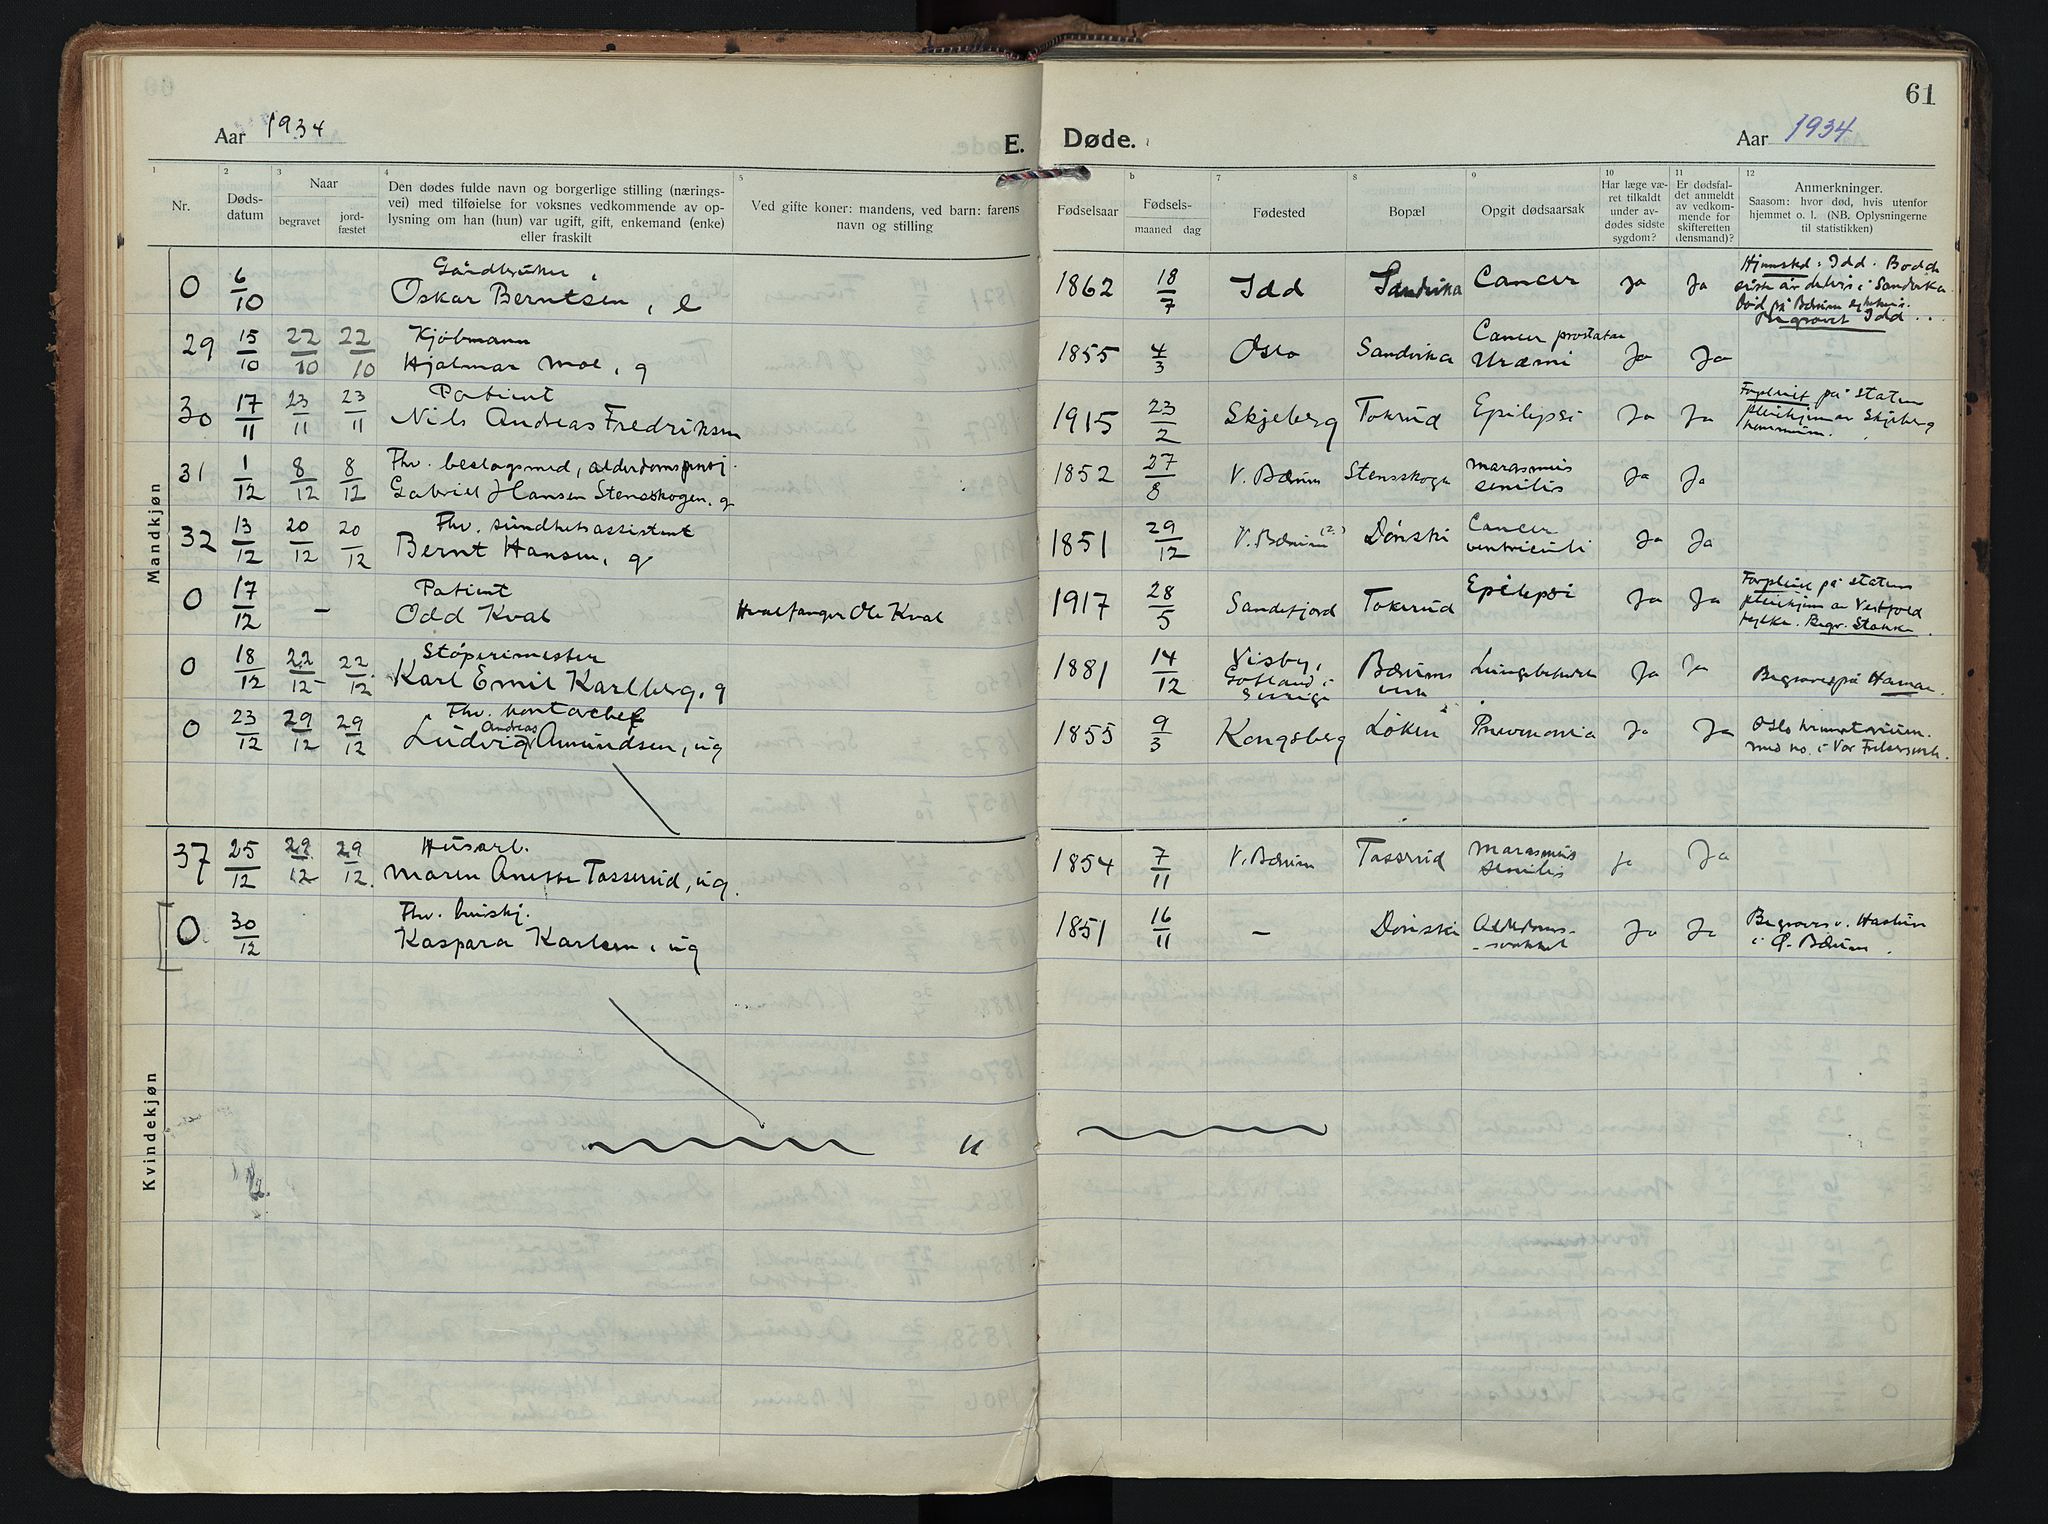 61
Aar 1934
E.
Døde.
Aar 1934
1
2
3
4
5
b
7
8
9
10
11
12
Nr.
Dødsdatum
Naar
begravet
jordfæstet
Den dødes fulde navn og borgerlige stilling (næringsvei) med tilføielse for voksnes vedkommende av oplysning om han (hun) var ugift, gift, enkemand (enke) eller fraskilt
Ved gifte koner: mandens, ved barn: farens navn og stilling
Fødselsaar
Fødselsmaaned dag
Fødested
Bopæl
Opgit dødsaarsak
Har læge været tilkaldt under avdødes sidste sygdom?
Er dødsfaldet anmeldt av vedkommende for skifteretten (lensmand)?
Anmerkninger.
Saasom: hvor død, hvis utenfor hjemmet o. l. (NB. Oplysningerne til statistikken)
Mandkjøn
0 6/10 Gårdbruker Oskar Berntsen, e 1862 18/7 Idd Sandvika Cancer Ja Ja Hjemsted: Idd. Bodde siste år delvis i Sandvika. Død på Bærum sykehus. Begravet Idd
29 15/10 22/10 22/10 Kjøbmann Hjalmar Moe, g 1855 4/3 Oslo Sandvika Cancer prostatae Uræmi Ja Ja
30 17/11 23/11 23/11 Patient Nils Andreas Fredriksen 1915 23/2 Skjeberg Tokerud Epilepsi Ja Ja Forpleiet på statens pleiehjem av Skjeberg kommune.
31 1/12 8/12 8/12 Fhv. beslagsmed, alderdomspensj. Gabriel Hansen Stensskogen, g 1852 27/8 V. Bærum Stensskogen marasmus senilis Ja Ja
32 13/12 20/12 20/12 Fhv. sundhetsassistent Bernt Hansen, g 1851 29/12 V. Bærum (?) Dønski Cancer ventriculi Ja Ja
0 17/12 – Patient Odd Kval Hvalfanger Ole Kval 1917 28/5 Sandefjord Tokerud Epilepsi Ja Ja Forpleiet på statens pleiehjem av Vestfold fylke. Begr. Stokke.
0 18/12 22/12 22/12 Støperimester Karl Emil Karlberg, g 1881 14/12 Visby, Gotland i Sverige Bærums verk Ja Ja Begraves på Hamar.
0 23/12 29/12 29/12 Fhv. kontorchef Ludvig Andreas Amundsen, ug 1855 9/3 Kongsberg Løken Pneumonia Ja Ja Oslo krematorium. med no. i Vor Frelsers
Kvindekjøn
37 25/12 29/12 29/12 Husarb. Maren Anette Tasserud, ug. 1854 7/11 V. Bærum Tasserud Marasmus senilis ja Ja
0 30/12 Fhv. hushj. Kaspara Karlsen, ug 1851 16/11 – Dønski Alderdomssvakhet Ja Ja Begraves v. Haslum i Ø. Bærum.